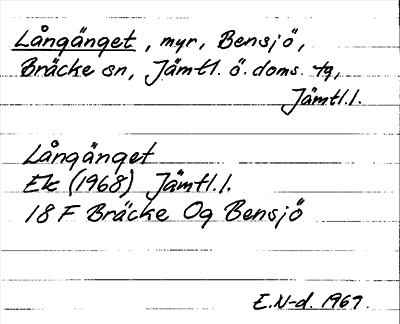 Långänget, myr, Bensjö,
Bräcke sn, Jämtl. ö. doms. tg,
Jämtl.l.
Långänget
Ek (1968) Jämtl.l.
18 F Bräcke Og Bensjö
E.N-d. 1969.